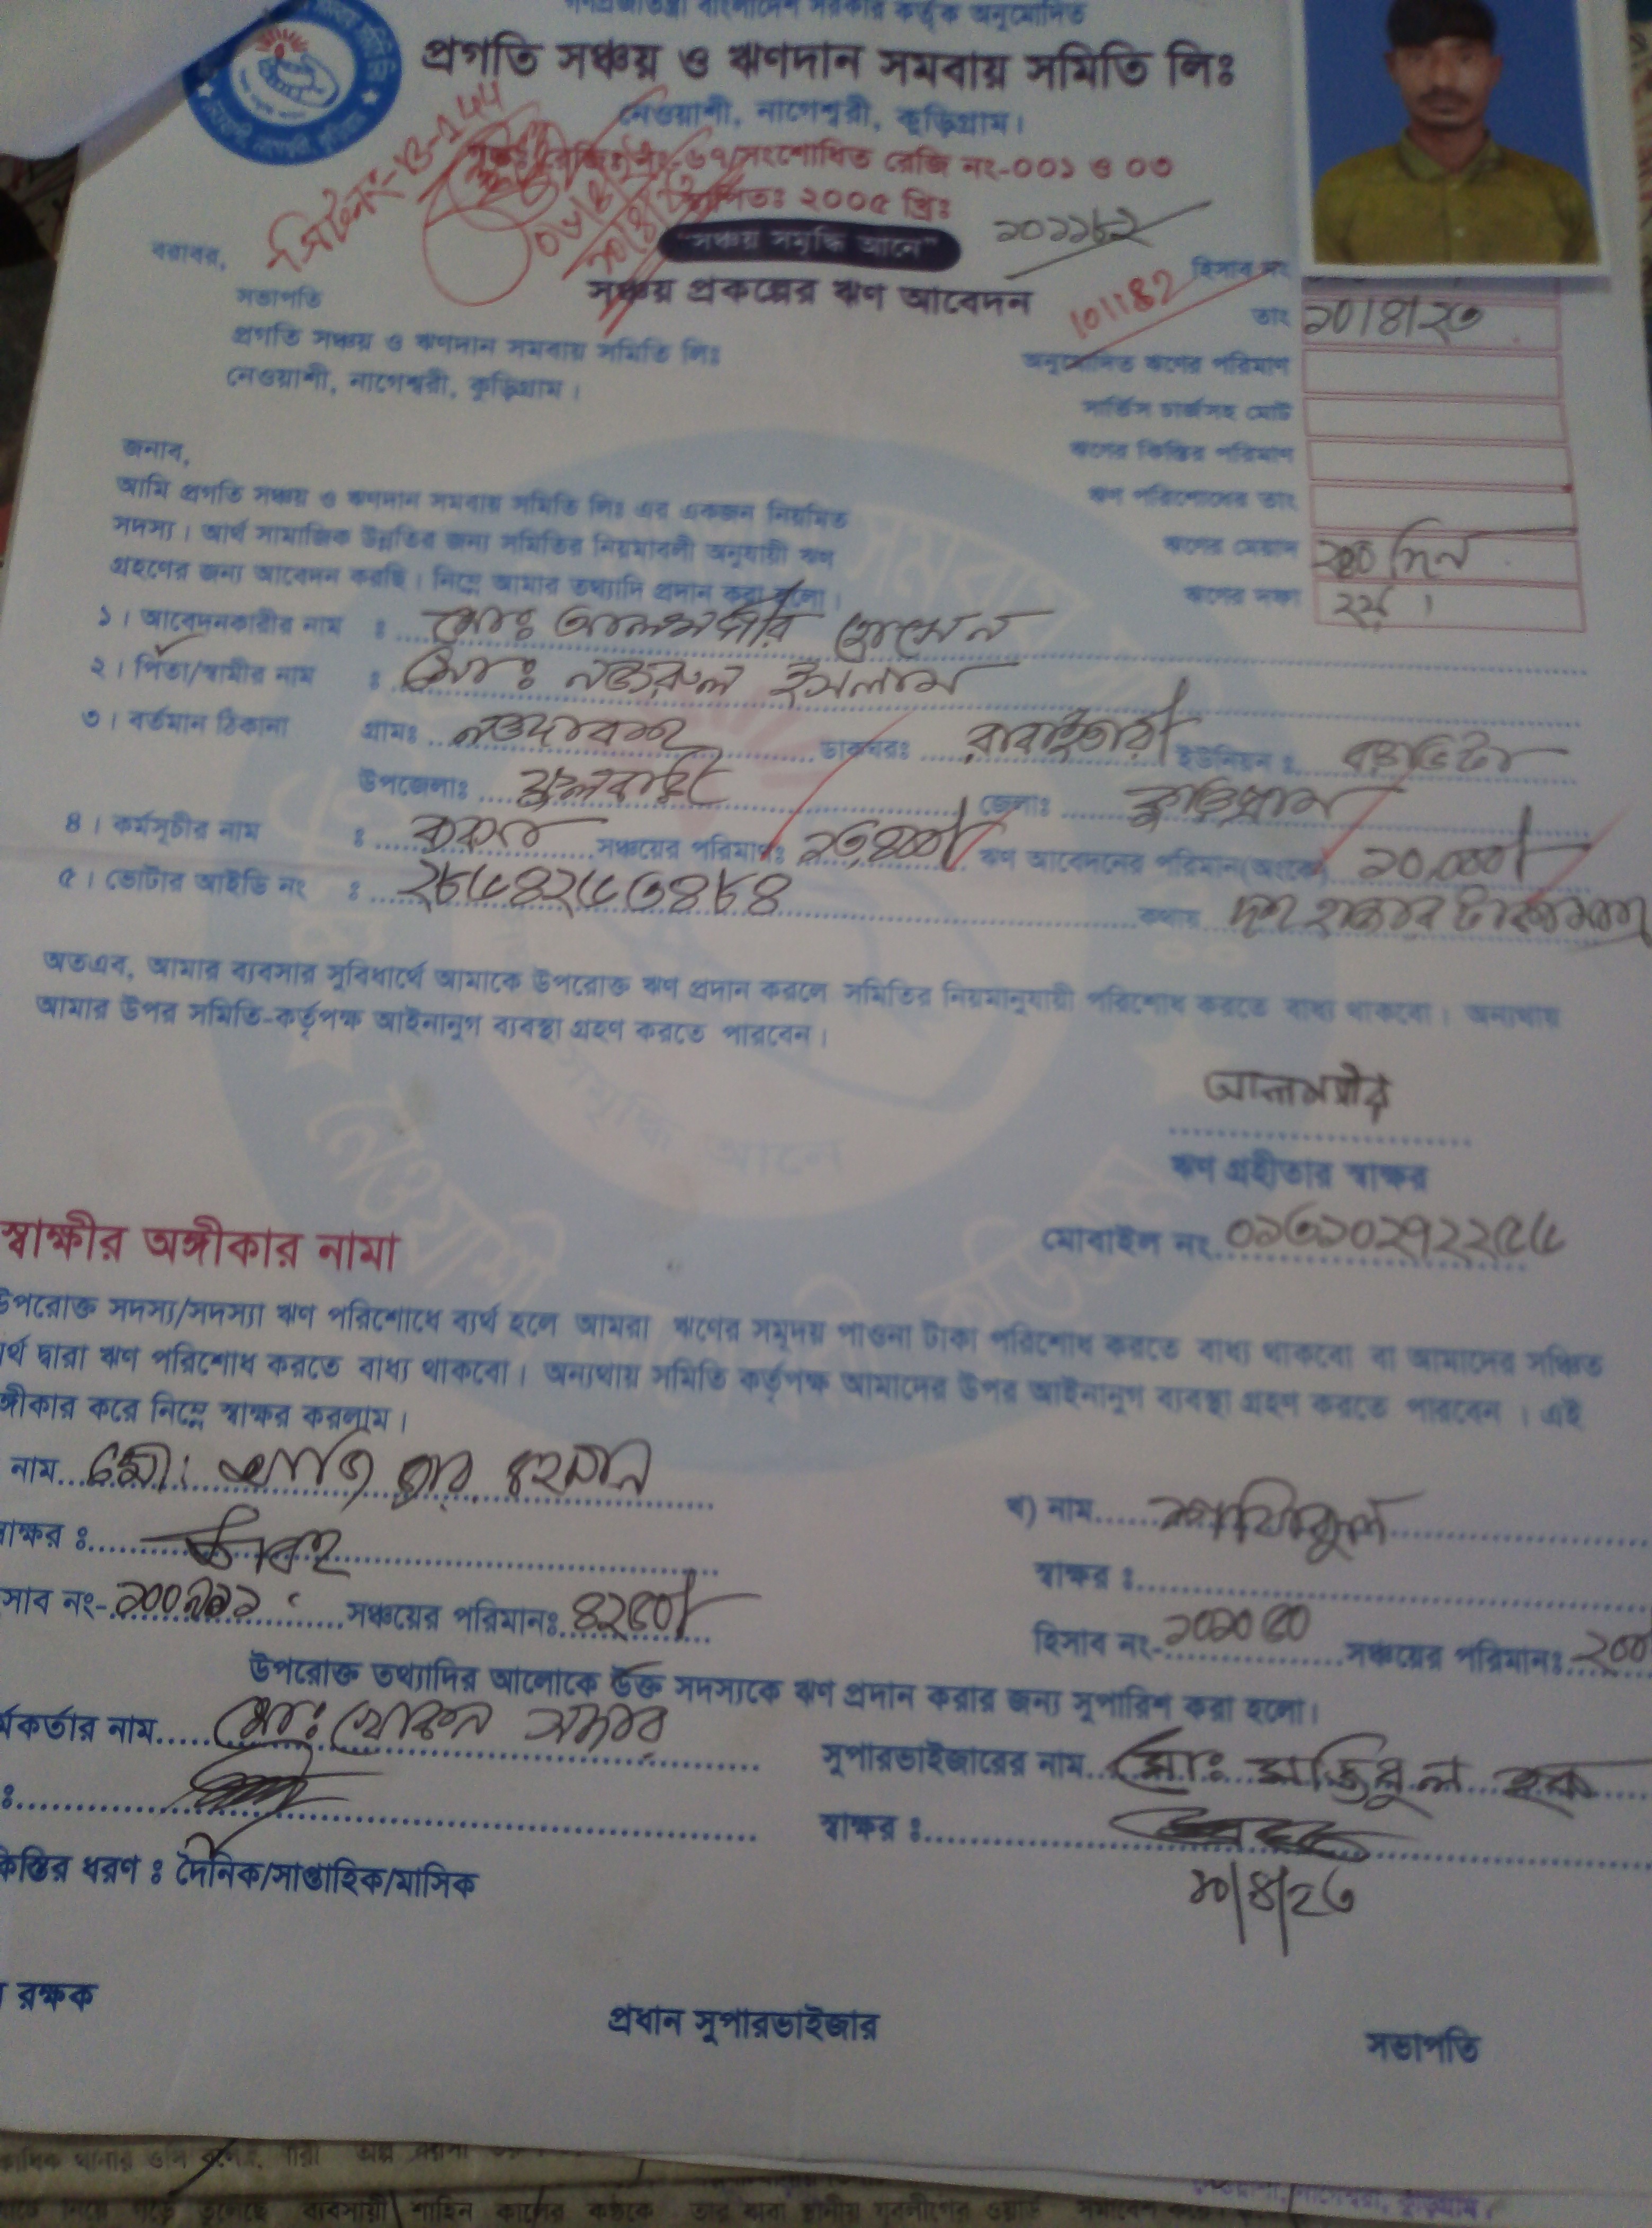 গণপ্রজাতন্ত্রী বাংলাদেশ সরকার কর্তৃক অনুমোদিত
প্রগতি সঞ্চয় ও ঋণদান সমবায় সমিতি লিঃ
নেওয়াশী, নাগেশ্বরী, কুড়িগ্রাম।
রেজিঃ নং-৬৭/সংশোধিত রেজি নং-০০১ ও ০৩
স্থাপিতঃ ২০০৫ খ্রিঃ
"সঞ্চয় সমৃদ্ধি আনে"
১০১১৮২
সঞ্চয় প্রকল্পের ঋণ আবেদন
101182
হিসাব নং
বরাবর,
সভাপতি
প্রগতি সঞ্চয় ও ঋণদান সমবায় সমিতি লিঃ
নেওয়াশী, নাগেশ্বরী, কুড়িগ্রাম।
তাং ১০/৪/২৩
অনুমোদিত ঋণের পরিমাণ
সার্ভিস চার্জসহ মোট
ঋণের কিস্তির পরিমাণ
ঋণ পরিশোধের তাং
ঋণের মেয়াদ দিন
ঋণের দফা ২য়।
জনাব,
আমি প্রগতি সঞ্চয় ও ঋণদান সমবায় সমিতি লিঃ এর একজন নিয়মিত
সদস্য। আর্থ সামাজিক উন্নতির জন্য সমিতির নিয়মাবলী অনুযায়ী ঋণ
গ্রহণের জন্য আবেদন করছি। নিম্নে আমার তথ্যাদি প্রদান করা হলো।
১। আবেদনকারীর নাম : মোঃ আলমগীর হোসেন
২। পিতা/স্বামীর নাম : মোঃ নজরুল ইসলাম
৩। বর্তমান ঠিকানা গ্রামঃ নওদাবশ ডাকঘরঃ রাবাইতারী ইউনিয়ন : বড়ভিটা
উপজেলাঃ ফুলবাড়ী জেলাঃ কুড়িগ্রাম
৪। কর্মসূচীর নাম : সঞ্চয়ের পরিমাণঃ ১৩,৪০০/- ঋণ আবেদনের পরিমান(অংকে) ১০,০০০/-
৫। ভোটার আইডি নং : ২৮৫৪২৫৩৪৮৪ কথায় দশ হাজার টাকা মাত্র
অতএব, আমার ব্যবসার সুবিধার্থে আমাকে উপরোক্ত ঋণ প্রদান করলে সমিতির নিয়মানুযায়ী পরিশোধ করতে বাধ্য থাকবো। অন্যথায়
আমার উপর সমিতি-কর্তৃপক্ষ আইনানুগ ব্যবস্থা গ্রহণ করতে পারবেন।
আলমগীর
ঋণ গ্রহীতার স্বাক্ষর
মোবাইল নং ০১৩১০২৭২২৫৫
স্বাক্ষীর অঙ্গীকার নামা
উপরোক্ত সদস্য/সদস্যা ঋণ পরিশোধে ব্যর্থ হলে আমরা ঋণের সমূদয় পাওনা টাকা পরিশোধ করতে বাধ্য থাকবো বা আমাদের সঞ্চিত
র্থ দ্বারা ঋণ পরিশোধ করতে বাধ্য থাকবো। অন্যথায় সমিতি কর্তৃপক্ষ আমাদের উপর আইনানুগ ব্যবস্থা গ্রহণ করতে পারবেন। এই
ঙ্গীকার করে নিম্নে স্বাক্ষর করলাম।
নাম মোঃ রহমান
খ) নাম
াক্ষর :
স্বাক্ষর :
সাব নং- সঞ্চয়ের পরিমানঃ ৪২৫০/-
হিসাব নং-১০১০৫০ সঞ্চয়ের পরিমানঃ ২০০
উপরোক্ত তথ্যাদির আলোকে উক্ত সদস্যকে ঋণ প্রদান করার জন্য সুপারিশ করা হলো।
র্মকর্তার নাম মোঃ খোকন
সুপারভাইজারের নাম মোঃ হক
স্বাক্ষর :
১০/৪/২৩
কিস্তির ধরণ : দৈনিক/সাপ্তাহিক/মাসিক
রক্ষক
প্রধান সুপারভাইজার
সভাপতি